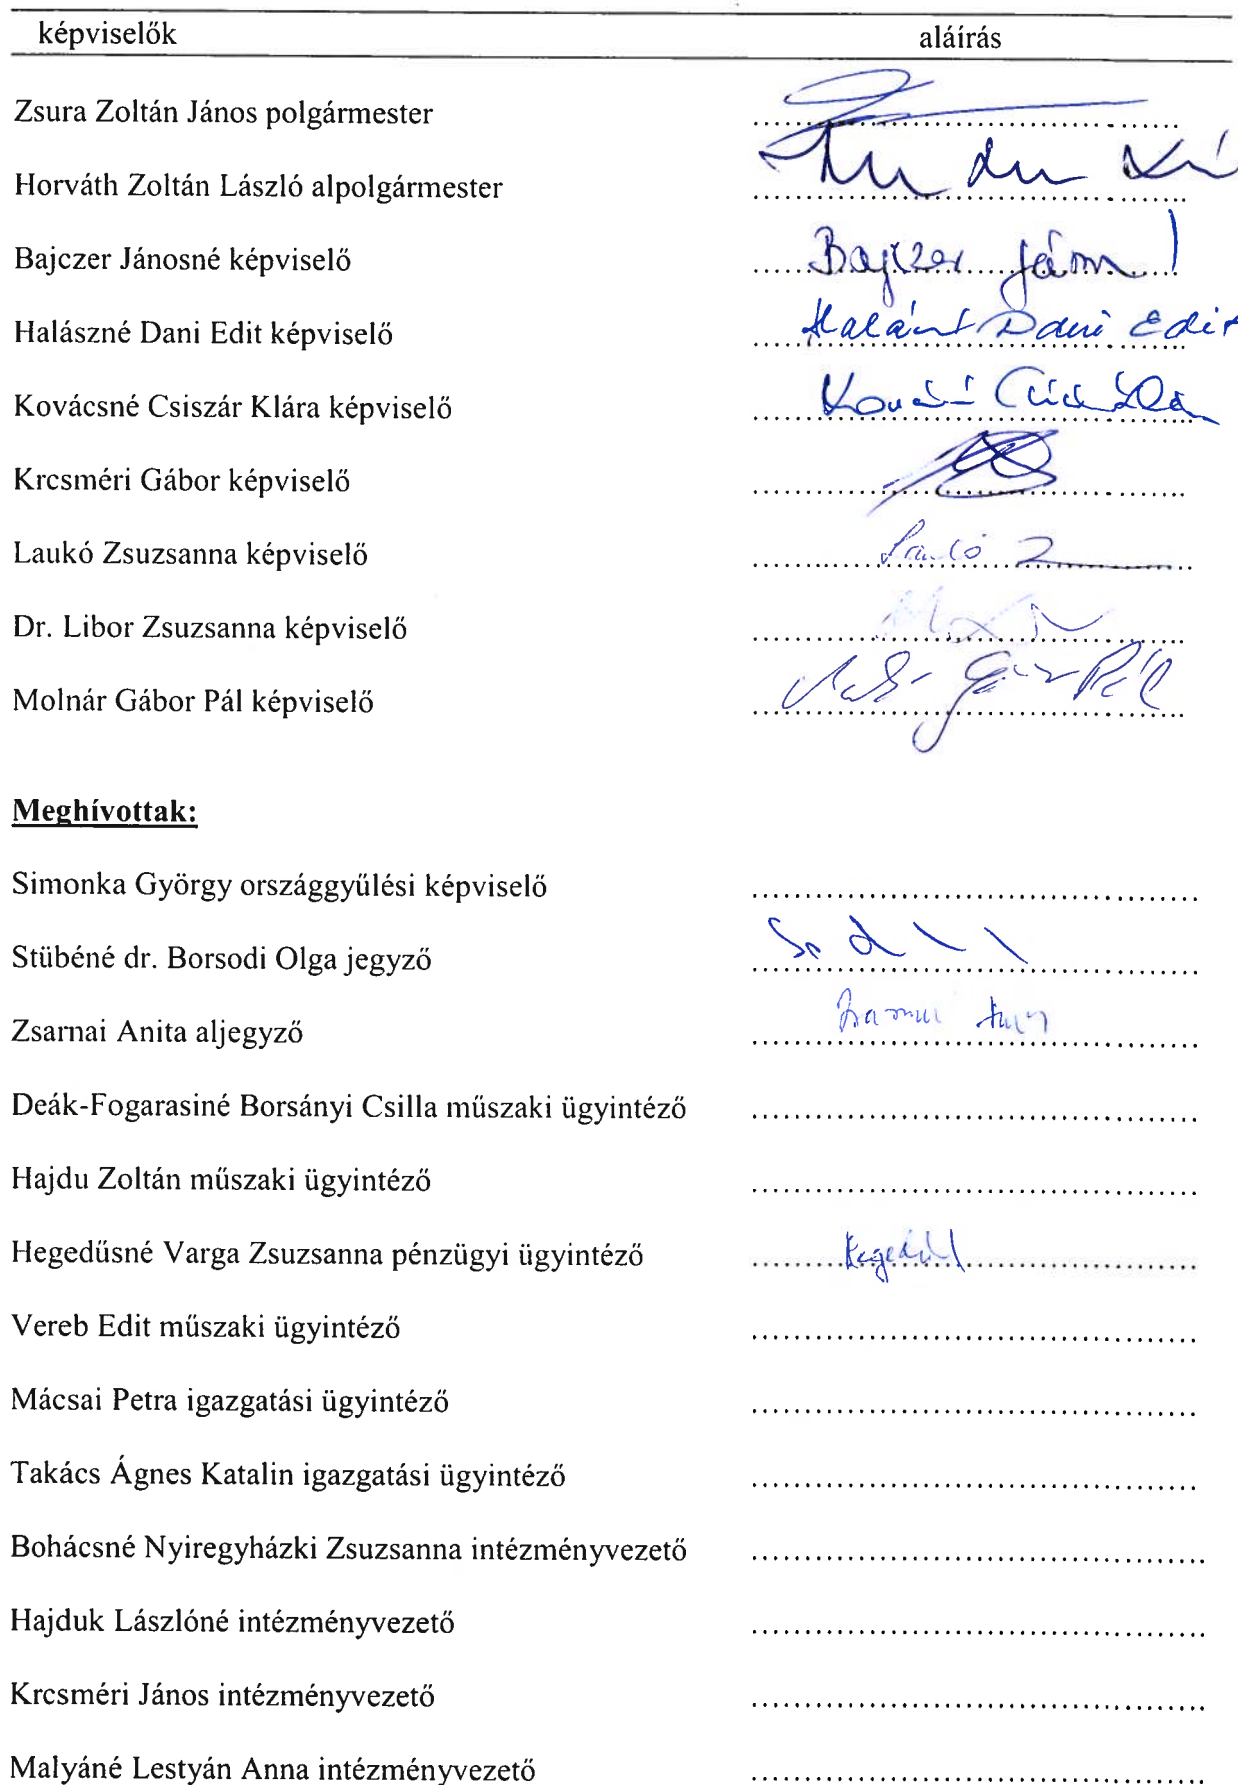 képviselők aláírás
Zsura Zoltán János polgármester
Horváth Zoltán László alpolgármester
Bajczer Jánosné képviselő Bajczer Jánosné
Halászné Dani Edit képviselő Halászné Dani Edit
Kovácsné Csiszár Klára képviselő
Krcsméri Gábor képviselő
Laukó Zsuzsanna képviselő Laukó
Dr. Libor Zsuzsanna képviselő
Molnár Gábor Pál képviselő Pál
Meghívottak:
Simonka György országgyűlési képviselő
Stübéné dr. Borsodi Olga jegyző
Zsarnai Anita aljegyző
Deák-Fogarasiné Borsányi Csilla műszaki ügyintéző
Hajdu Zoltán műszaki ügyintéző
Hegedűsné Varga Zsuzsanna pénzügyi ügyintéző
Vereb Edit műszaki ügyintéző
Mácsai Petra igazgatási ügyintéző
Takács Ágnes Katalin igazgatási ügyintéző
Bohácsné Nyiregyházki Zsuzsanna intézményvezető
Hajduk Lászlóné intézményvezető
Krcsméri János intézményvezető
Malyáné Lestyán Anna intézményvezető